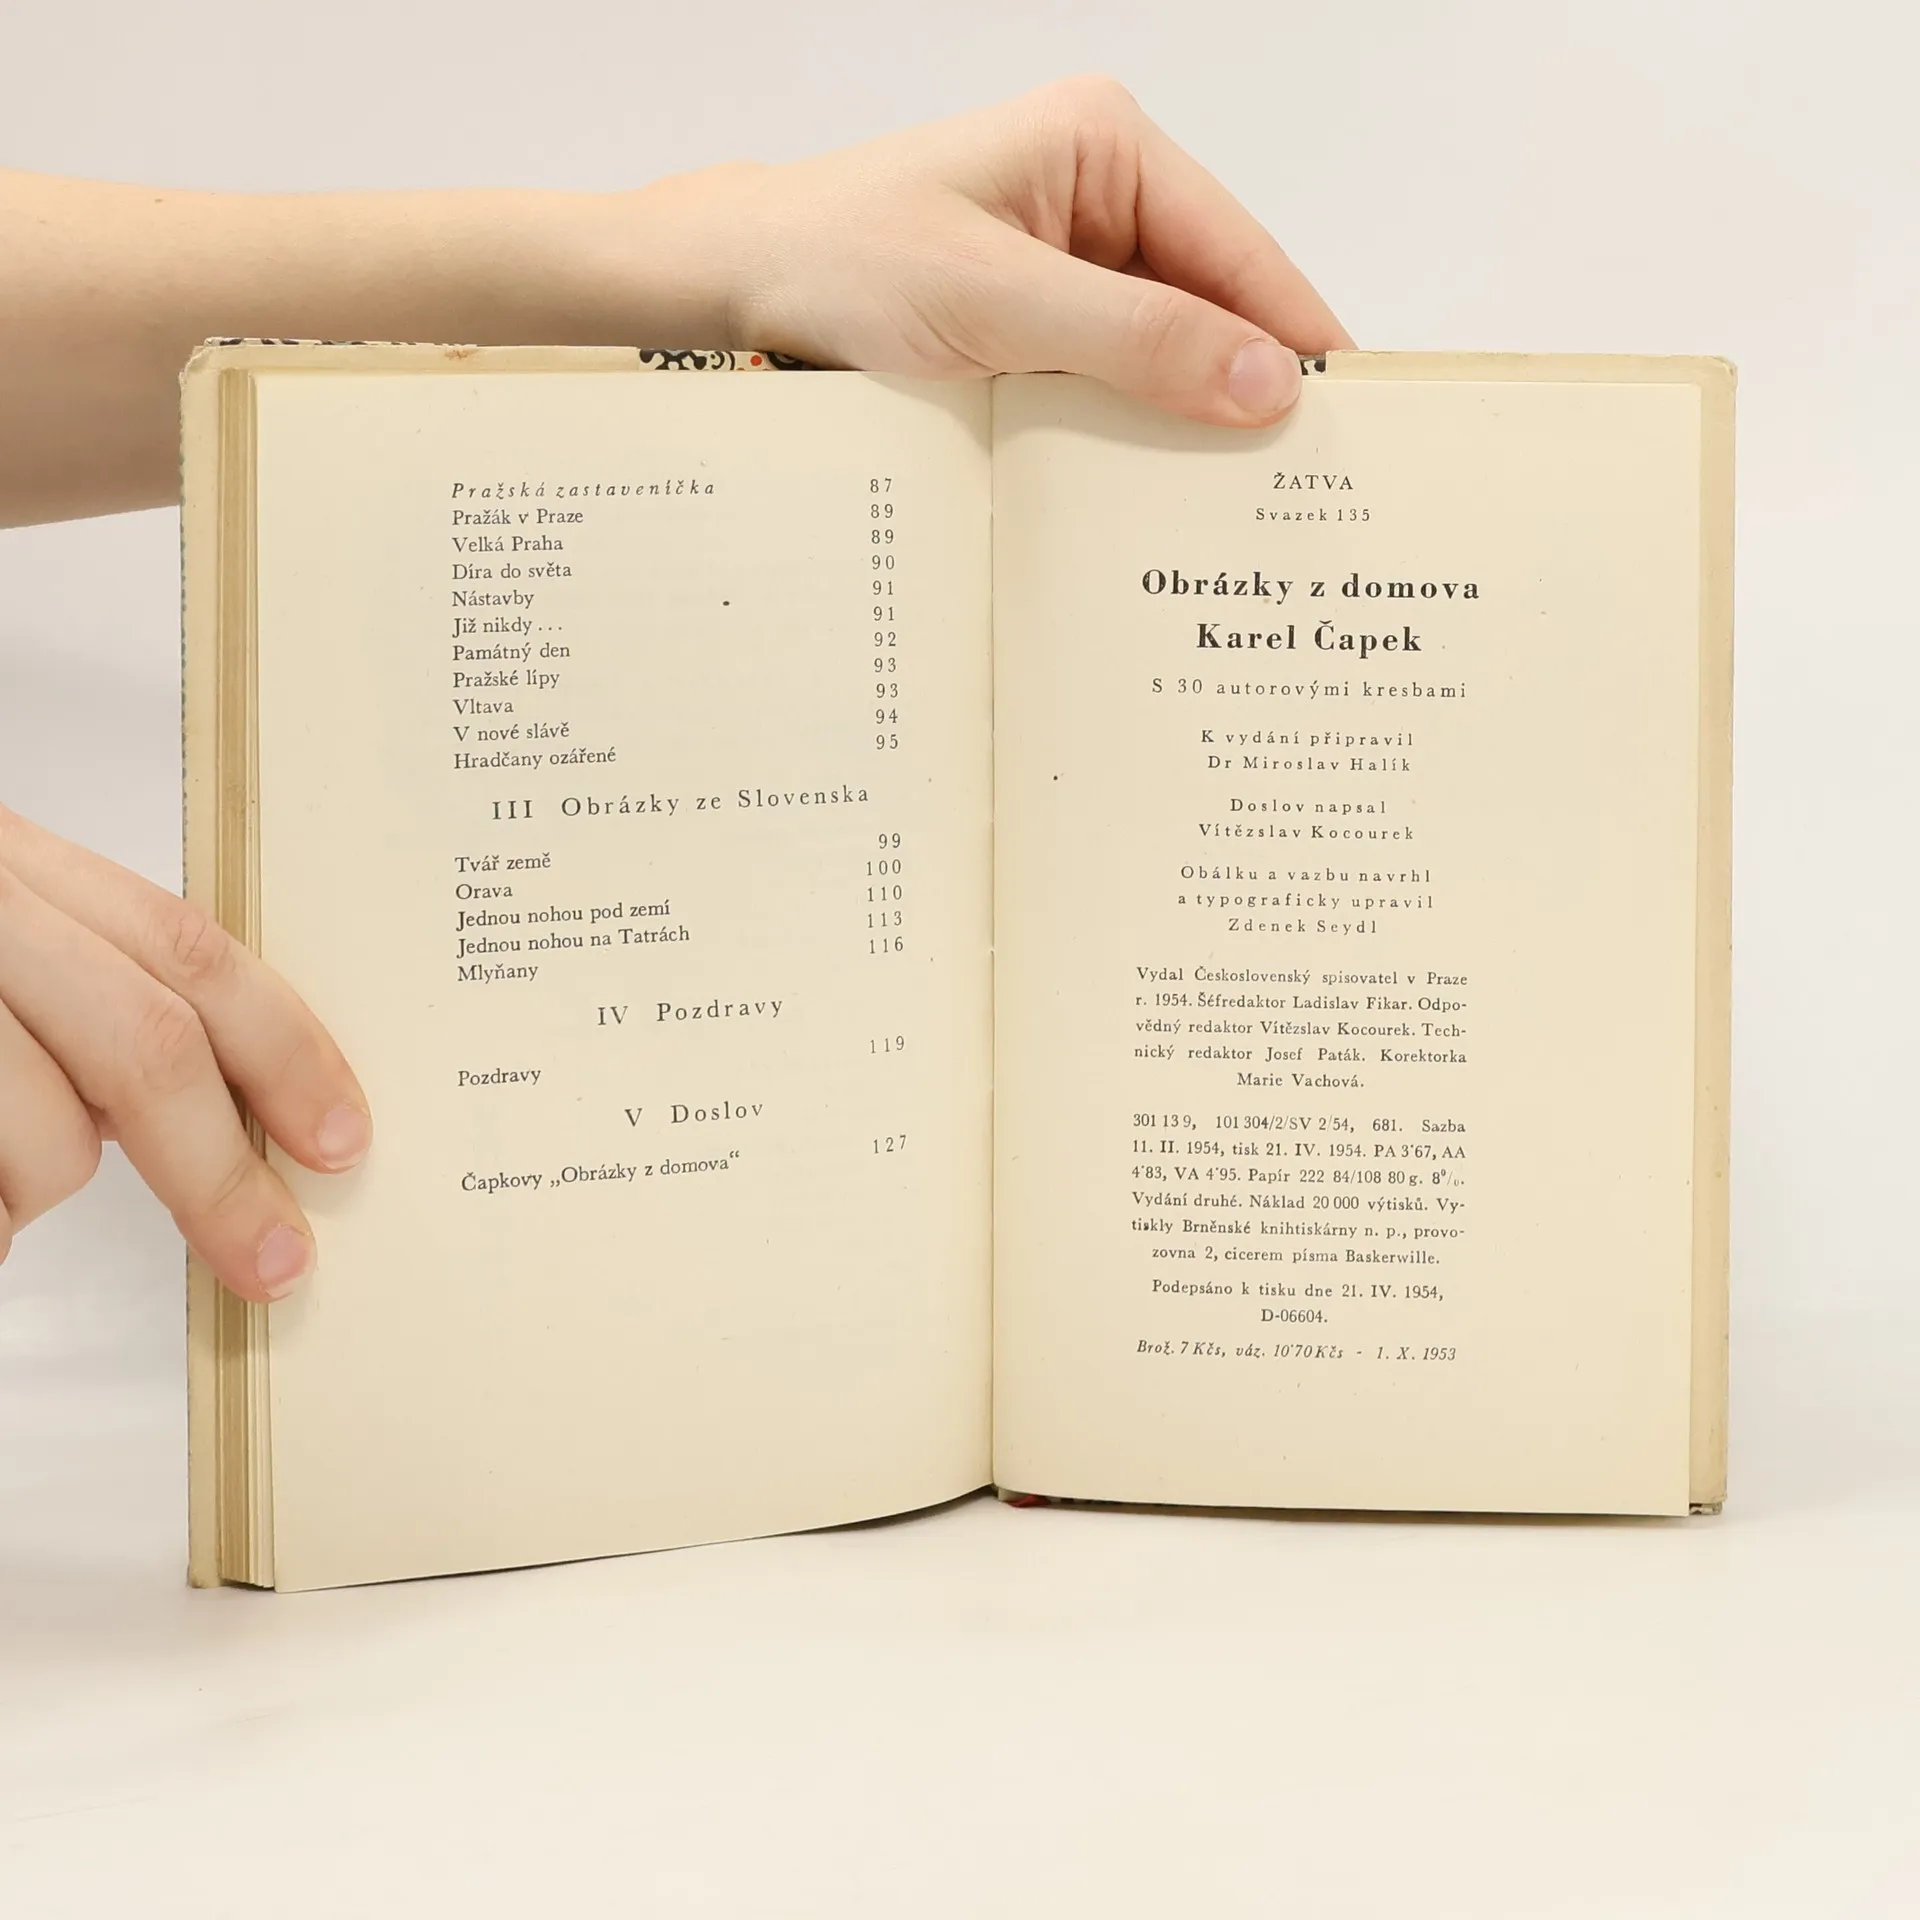 Pražská zastaveníčka 87
Pražák v Praze 89
Velká Praha 89
Díra do světa 90
Nástavby 91
Již nikdy . . . 91
Památný den 92
Pražské lípy 93
Vltava 93
V nové slávě 94
Hradčany ozářené 95
III Obrázky ze Slovenska
Tvář země 99
Orava 100
Jednou nohou pod zemí 110
Jednou nohou na Tatrách 113
Mlyňany 116
IV Pozdravy
Pozdravy 119
V Doslov
Čapkovy „Obrázky z domova“ 127
ŽATVA
Svazek 135
Obrázky z domova
Karel Čapek
S 30 autorovými kresbami
K vydání připravil
Dr Miroslav Halík
Doslov napsal
Vítězslav Kocourek
Obálku a vazbu navrhl
a typograficky upravil
Zdenek Seydl
Vydal Československý spisovatel v Praze
r. 1954. Šéfredaktor Ladislav Fikar. Odpo-
vědný redaktor Vítězslav Kocourek. Tech-
nický redaktor Josef Paták. Korektorka
Marie Vachová.
301 13 9, 101 304/2/SV 2/54, 681. Sazba
11. II. 1954, tisk 21. IV. 1954. PA 3˙67, AA
4˙83, VA 4˙95. Papír 222 84/108 80 g. 8⁰/₀.
Vydání druhé. Náklad 20 000 výtisků. Vy-
tiskly Brněnské knihtiskárny n. p., provo-
zovna 2, cicerem písma Baskerwille.
Podepsáno k tisku dne 21. IV. 1954,
D-06604.
Brož. 7 Kčs, váz. 10˙70 Kčs - 1. X. 1953